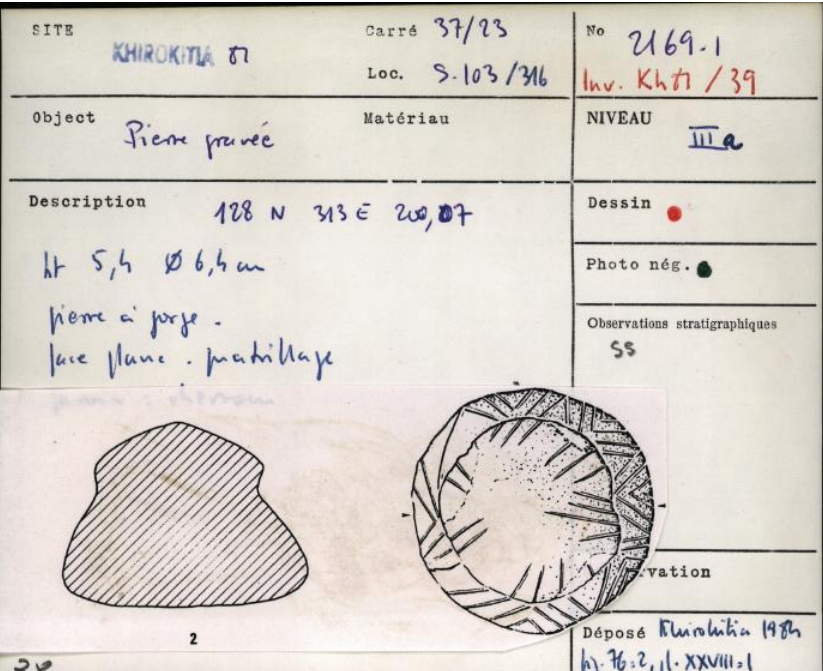 SITE KHIROKITIA 81
Carré 37/23
Loc. S.103/316
No 2169.1
Inv. Kh 81 / 39
Object Pierre gravée
Matériau
NIVEAU IIIa
Description 128 N 313 E 200,07
ht 5,4 Ø 6,4 cm
pierre à gorge.
face plane. quadrillage
Dessin
Photo nég.
Observations stratigraphiques
SS
2
vation
Déposé Khirokitia 1984
76:2, pl. XXVIII:1